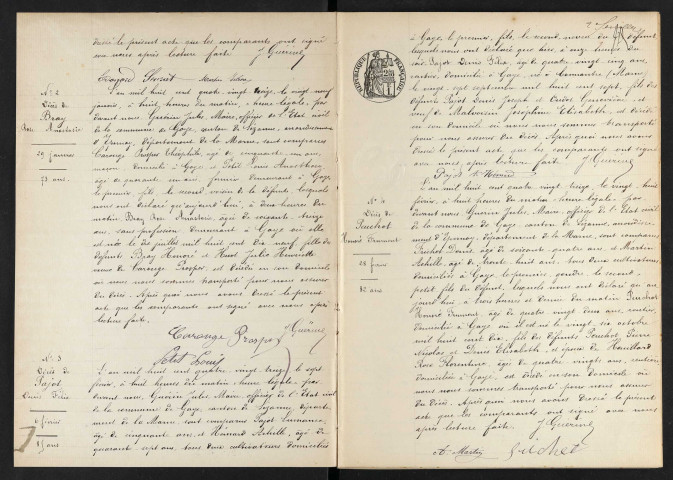 dressé le présent acte que les comparants ont signé
avec nous après lecture faite. J Guerin
N° 2
Décès de
Bray
Rose Anastasie
29 Janvier
73 ans
L'an mil huit cent quatre-vingt treize, le vingt neuf
janvier, à huit heures du matin, heure légale, par
devant nous, Guérin Jules, Maire, officier de l'Etat civil
de la commune de Gaye, canton de Sézanne, arrondissement
d'Epernay, département de la Marne, sont comparus
Carange Prosper Théophile, âgé de cinquante ans,
maçon, domicilié à Gaye et Petit Louis
âgé de quarante ans, demeurant à Gaye,
le premier fils, le second voisin de la défunte, lesquels
nous ont déclaré qu'aujourd'hui, à deux heures du
matin, Bray Rose Anastasie, âgée de soixante-treize
ans, sans profession, demeurant à Gaye où elle
est née le juillet mil huit cent dix neuf, fille de
défunts Bray Honoré et Huot Julie Henriette
veuve de Carange Prosper, est décédée en son domicile
où nous nous sommes transporté pour nous assurer
du décès. Après quoi nous avons dressé le présent
acte que les comparants ont signé avec nous après
lecture faite.
Carange Prosper J Guerin
Petit Louis
N° 3
Décès de
Pajot
Denis Félix
6 février
85 ans
L'an mil huit cent quatre-vingt treize, le sept
février, à huit heures du matin, heure légale, par
devant nous, Guérin Jules, Maire, officier de l'Etat civil
de la commune de Gaye, canton de Sézanne, département
de la Marne, sont comparus Pajot
âgé de cinquante ans, et Hémard Achille, âgé de
quarante-sept ans, tous deux cultivateurs domiciliés
à Gaye, le premier, fils, le second neveu du défunt
lesquels nous ont déclaré que hier, à onze heures du
soir, Pajot Denis Félix, âgé de quatre-vingt cinq ans,
rentier, domicilié à Gaye, né à (Marne)
le vingt sept septembre mil huit cent sept, fils des
défunts Pajot Denis Joseph et Geneviève et
veuf de Joséphine Elisabeth, est décédé
en son domicile où nous nous sommes transporté
pour nous assurer du décès. Après quoi nous avons
dressé le présent acte que les comparants ont signé
avec nous, après lecture faite. J Guerin
Pajot A Hémard
RÉPUBLIQUE FRANÇAISE
N° 4
Décès de
Puichot
Honoré Francoeur
28 février
82 ans
L'an mil huit cent quatre vingt treize, le vingt huit
février, à huit heures du matin, heure légale, par
devant nous Guérin Jules, Maire, officier de l'Etat civil
de la commune de Gaye, canton de Sézanne, arrondissement
d'Epernay, département de la Marne, sont comparus
Puichot Denis, âgé de soixante quatre ans, et Martin
Achille, âgé de trente huit ans, tous deux cultivateurs,
domiciliés à Gaye, le premier, gendre, le second,
petit fils du défunt, lesquels nous ont déclaré qu'au-
jourd'hui, à trois heures et demie du matin, Puichot
Honoré Francoeur, âgé de quatre vingt deux ans, rentier,
domicilié à Gaye où il est né le vingt six octobre
mil huit cent dix, fils des défunts Puichot Pierre
Nicolas et Denis Elisabeth, et époux de Houillard
Rose Florentine, âgée de quatre vingts ans, rentière
domiciliée à Gaye, est décédé en son domicile où
nous nous sommes transporté pour nous assurer
du décès. Après quoi nous avons dressé le présent
acte que les comparants ont signé avec nous
après lecture faite. J Guerin
A. Martin Puichot